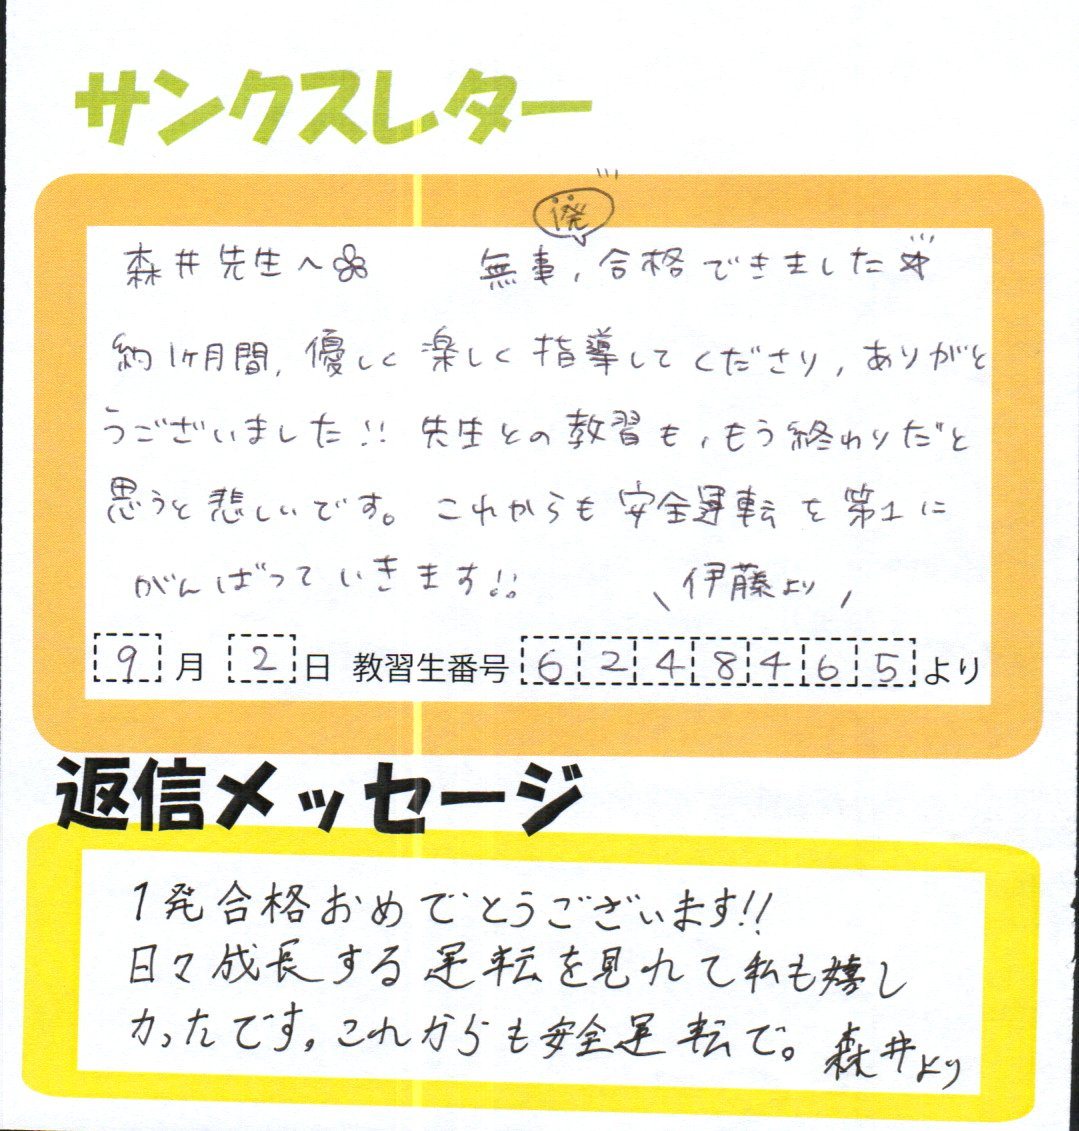 サンクスレター
1発
森井先生へ 無事、合格できました☆
約1ヶ月間、優しく楽しく指導してくださり、ありがと
うございました!! 先生との教習も、もう終わりだと
思うと悲しいです。これからも安全運転を第1に
がんばっていきます!! \伊藤より/
9月2日 教習生番号6248465より
返信メッセージ
1発合格おめでとうございます!!
日々成長する運転を見れて私も嬉し
かったです。これからも安全運転で。森井より